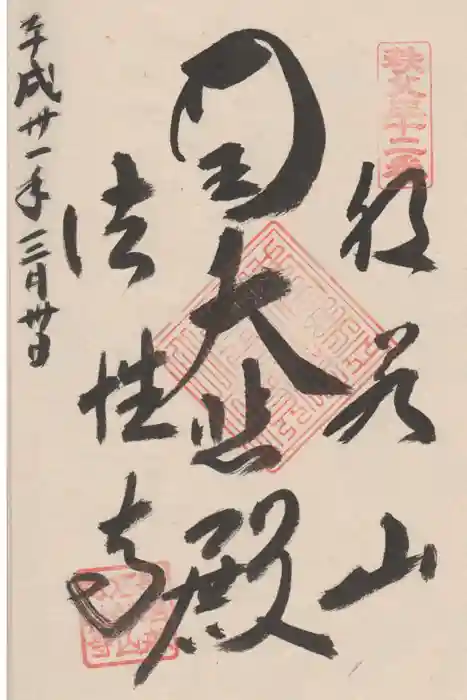 秩父三十二番
般若山
大悲殿
法性寺
平成卅一年三月卅日